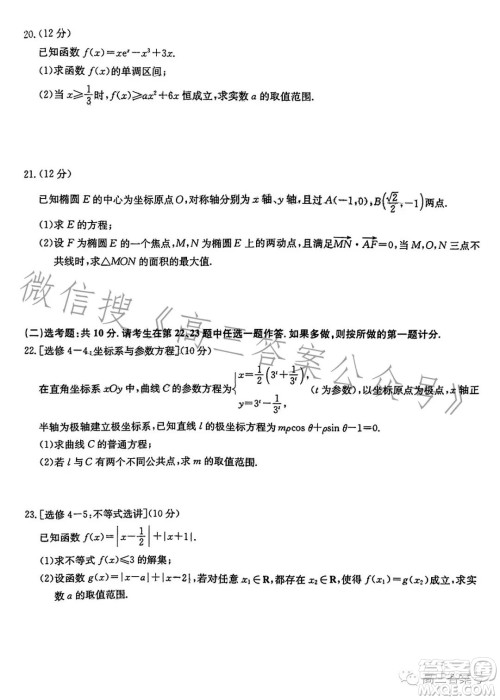 20.(12 分)
已知函数 f(x)=xeˣ-x³+3x.
(1)求函数 f(x)的单调区间;
(2)当 x≥1/3时,f(x)≥ax²+6x 恒成立,求实数 a 的取值范围.
21.(12 分)
已知椭圆 E 的中心为坐标原点 O,对称轴分别为 x 轴、y 轴,且过 A(-1,0),B(√2/2,-1)两点.
(1)求 E 的方程;
(2)设 F 为椭圆 E 的一个焦点,M,N 为椭圆 E 上的两动点,且满足MN·AF=0,当 M,O,N 三点不
共线时,求△MON 的面积的最大值.
微信搜《高三答案公众号》
(二)选考题:共 10 分. 请考生在第 22、23 题中任选一题作答. 如果多做,则按所做的第一题计分.
22.[选修 4-4:坐标系与参数方程](10 分)
在直角坐标系 xOy 中,曲线 C 的参数方程为{x=1/2(3ᵗ+1/3ᵗ) y=3ᵗ-1/3ᵗ (t 为参数),以坐标原点为极点,x 轴正
半轴为极轴建立极坐标系,已知直线 l 的极坐标方程为 mρcos θ+ρsin θ-1=0.
(1)求曲线 C 的普通方程;
(2)若 l 与 C 有两个不同公共点,求 m 的取值范围.
23.[选修 4-5:不等式选讲](10 分)
已知函数 f(x)=|x-1/2|+|x+1|.
(1)求不等式 f(x)≤3 的解集;
(2)设函数 g(x)=|x-a|+|x-2|,若对任意 x₁∈R,都存在 x₂∈R,使得 f(x₁)=g(x₂)成立,求实
数 a 的取值范围.